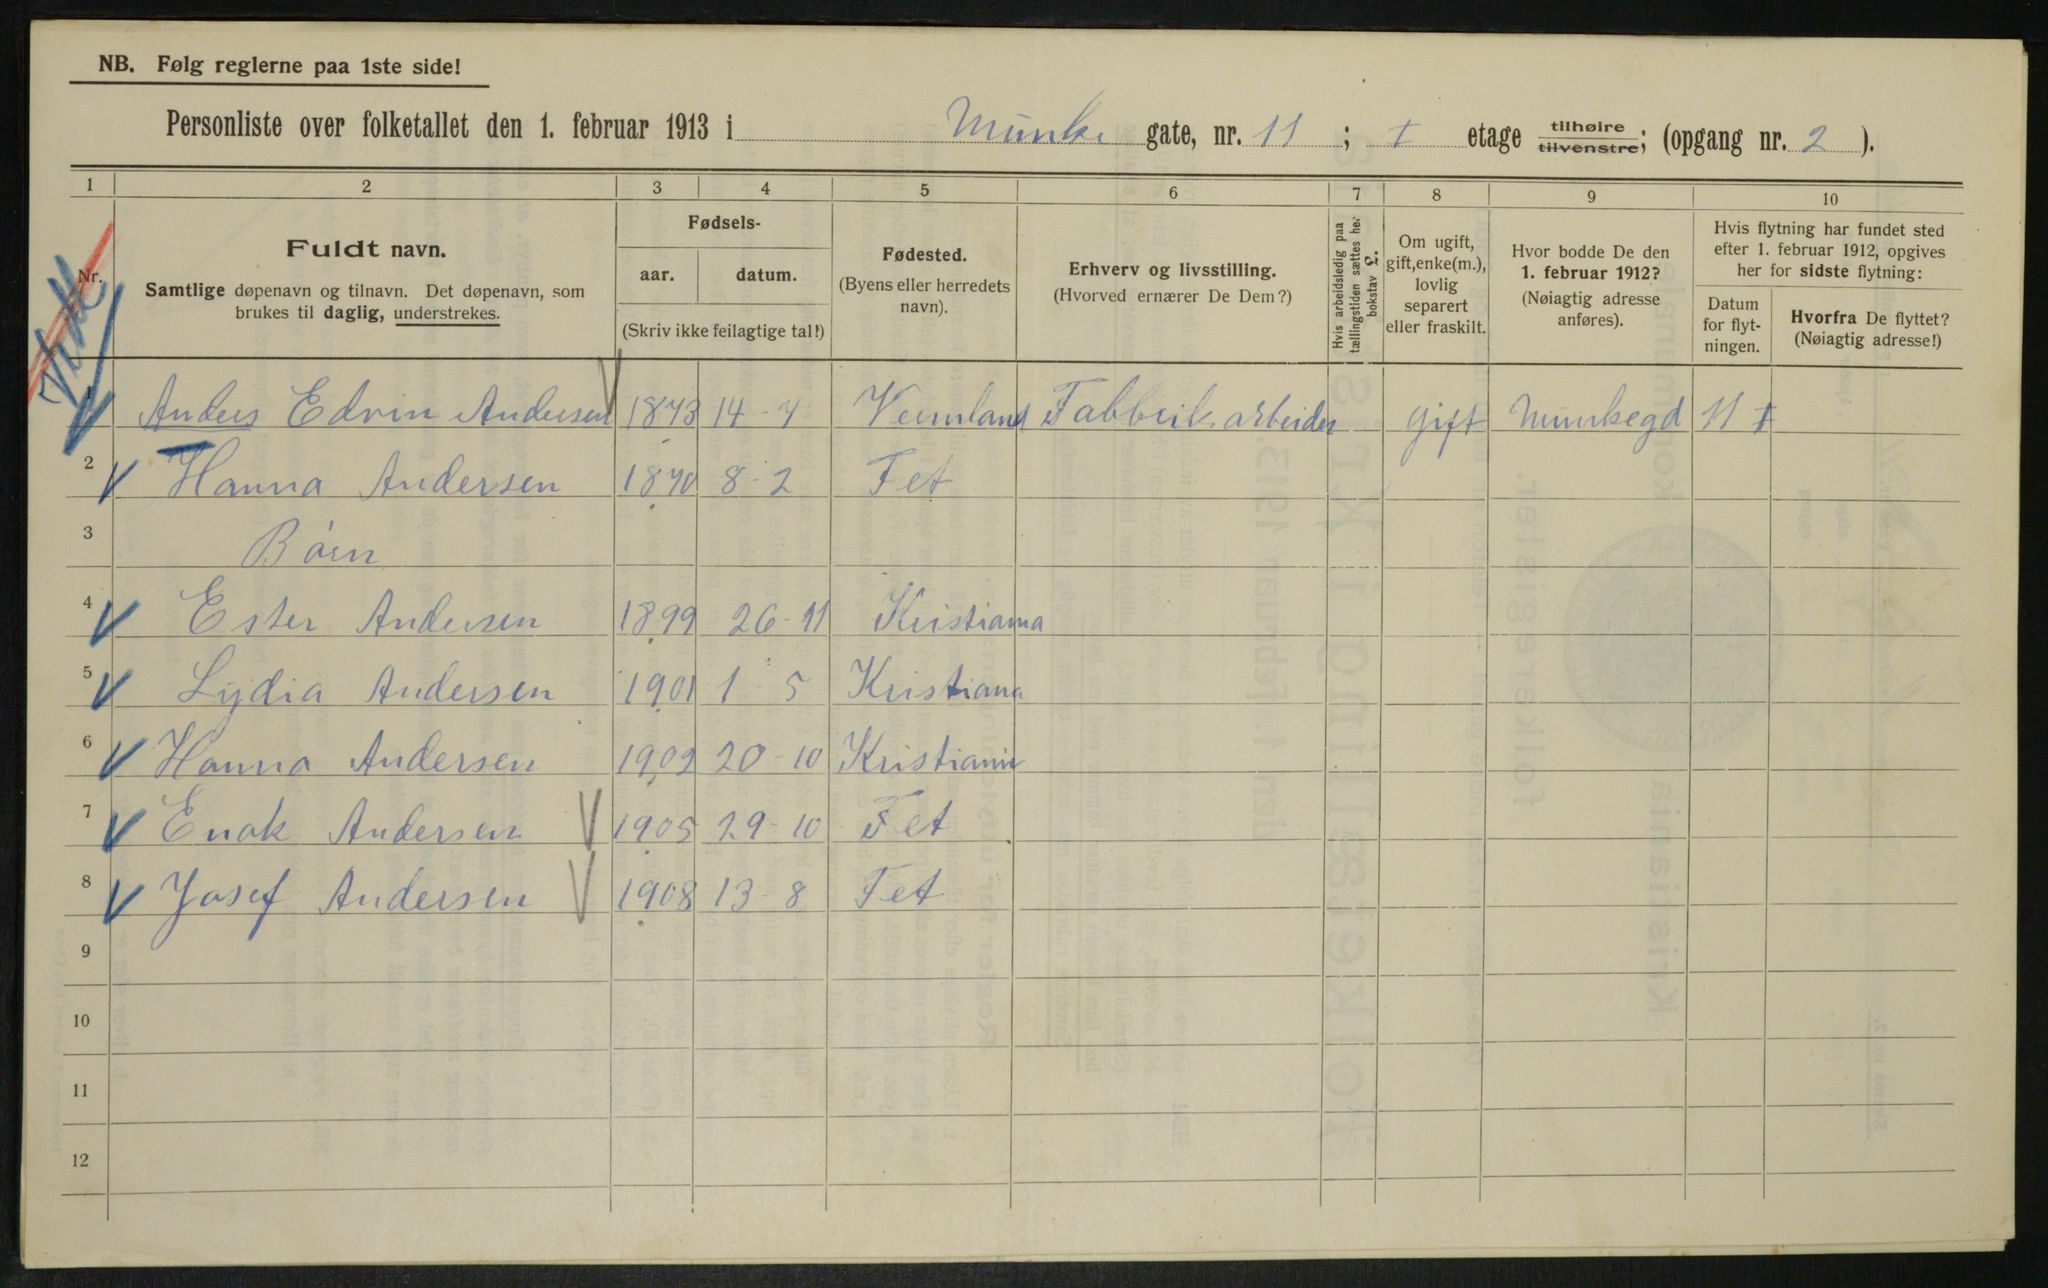 NB. Følg reglerne paa 1ste side!
Personliste over folketallet den 1. februar 1913 i Munke gate, nr. 11 ; I etage tilhøire tilvenstre; (opgang nr. 2 ).
1 2 3 4 5 6 7 8 9 10
Nr.
Fuldt navn.
Samtlige døpenavn og tilnavn. Det døpenavn, som
brukes til daglig, understrekes.
Fødsels-
aar. datum.
(Skriv ikke feilagtige tal!)
Fødested.
(Byens eller herredets
navn).
Erhverv og livsstilling.
(Hvorved ernærer De Dem?)
Hvis arbeidsledig paa
tællingstiden sættes her
bokstav L.
Om ugift,
gift, enke(m.),
lovlig
separert
eller fraskilt.
Hvor bodde De den
1. februar 1912?
(Nøiagtig adresse
anføres).
Hvis flytning har fundet sted
efter 1. februar 1912, opgives
her for sidste flytning:
Datum
for flyt-
ningen.
Hvorfra De flyttet?
(Nøiagtig adresse!)
1 Anders Edvin Andersen 1873 14 - 7 Vermland Fabbrik arbeider gift Munkegd 11 I
2 Hanna Andersen 1870 8 - 2 Fet
3 Børn
4 Ester Andersen 1899 26 - 11 Kristiania
5 Lydia Andersen 1901 1 - 5 Kristiana
6 Hanna Andersen 1902 20 - 10 Kristiania
7 Enok Andersen 1905 29 - 10 Fet
8 Josef Andersen 1908 13 - 8 Fet
9
10
11
12